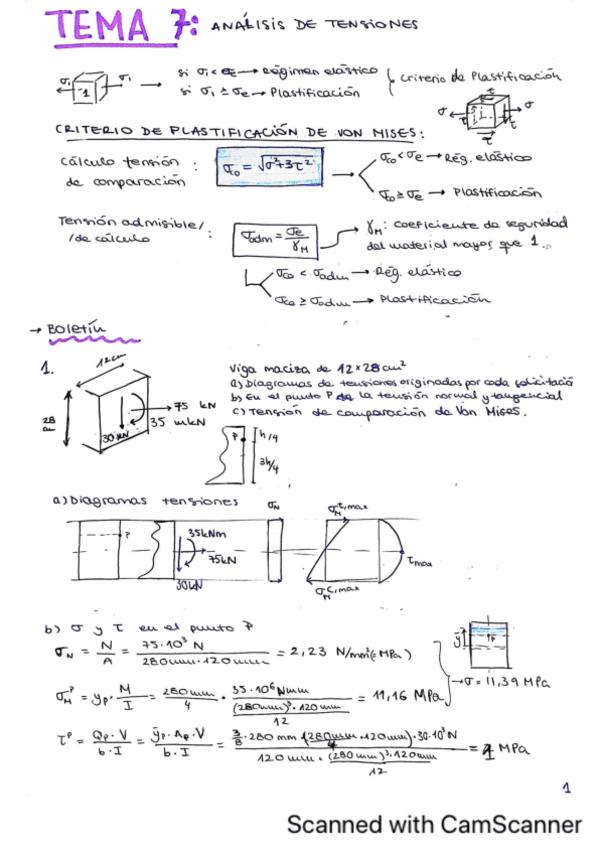 TEMA 7: ANÁLISIS DE TENSIONES
σ₁ 1 σ₁ → si σ₁ < σe → Régimen elástico
si σ₁ ≥ σe → Plastificación
criterio de Plastificación
σ τ σ τ τ
CRITERIO DE PLASTIFICACIÓN DE VON MISES:
Cálculo tensión de comparación : σco = √σ²+3τ²
σco < σe → Rég. elástico
σco ≥ σe → Plastificación
Tensión admisible/ /de cálculo : σadm = σe / γM
γM: coeficiente de seguridad del material mayor que 1.
σco < σadm → Rég. elástico
σco ≥ σadm → Plastificación
→ Boletín
1.
12cm
28 cm
30 kN
75 kN
35 mkN
Viga maciza de 12×28 cm²
a) Diagramas de tensiones originadas por cada solicitació
b) En el punto P la tensión normal y tangencial
c) Tensión de comparación de Von Mises.
P h/4
3h/4
a) Diagramas tensiones
σN σM t,max
P 35kNm
75kN
30kN
σM c,max
τmax
b) σ y τ en el punto P
σN = N/A = 75·10³ N / 280mm·120mm = 2,23 N/mm²(=MPa)
σM^P = yP · M/I = 280mm/4 · 35·10⁶ Nmm / ((280mm)³·120mm / 12) = 11,16 MPa
→ σ = 11,39 MPa
ȳ P
τ^P = QP·V / b·I = ȳP·AP·V / b·I = 3/8·280 mm (280mm/4·120mm)·30·10³N / 120mm·((280mm)³·120mm / 12) = 1 MPa
1
Scanned with CamScanner